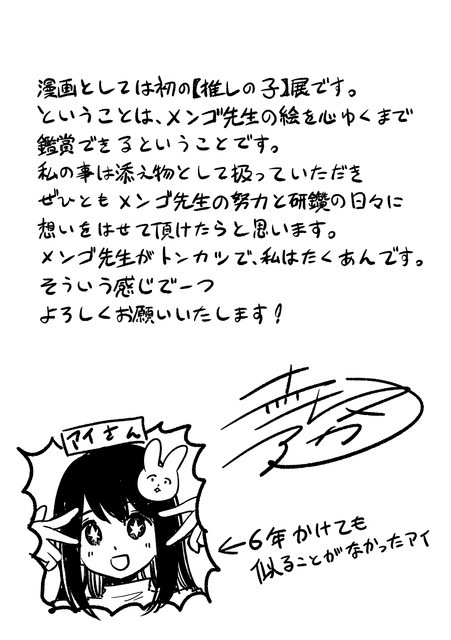 漫画としては初の【推しの子】展です。
ということは、メンゴ先生の絵を心ゆくまで
鑑賞できるということです。
私の事は添え物として扱っていただき
ぜひともメンゴ先生の努力と研鑽の日々に
想いをはせて頂けたらと思います。
メンゴ先生がトンカツで、私はたくあんです。
そういう感じで一つ
よろしくお願いいたします！
アイさん
←6年かけても
似ることがなかったアイ